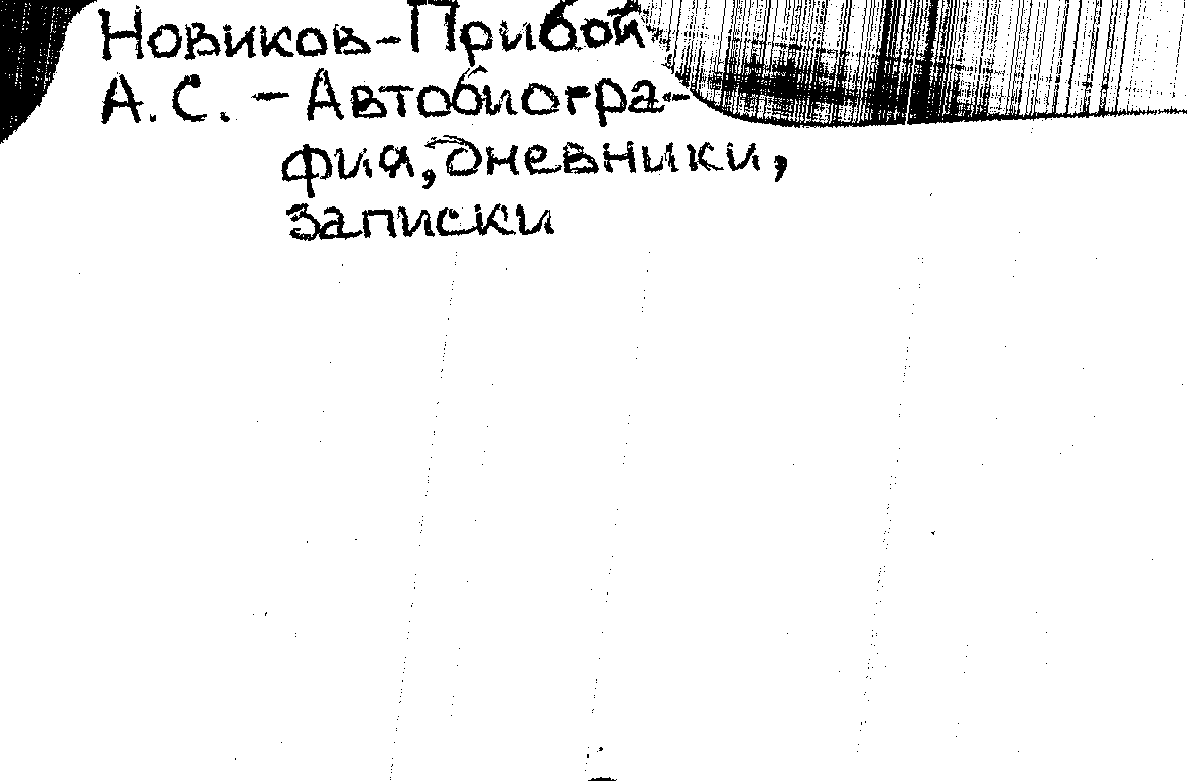 Новиков-Прибой
А. С. - Автобиогра-
фия, дневники,
записки